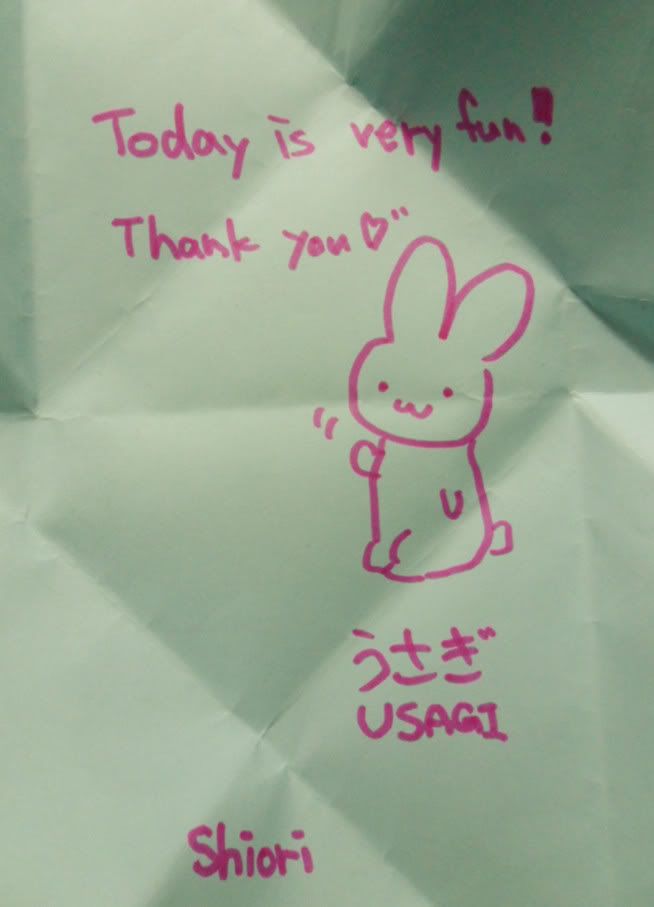 Today is very fun!
Thank you♡"
U
うさぎ
USAGI
Shiori